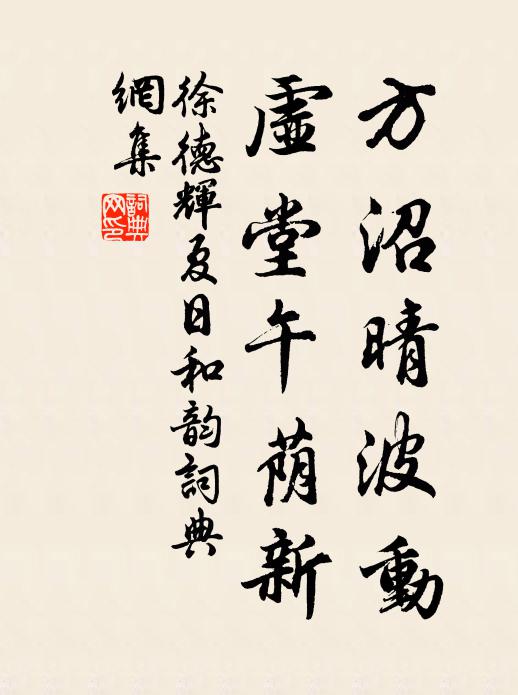 方沼晴波動
虛堂午荫新
徐德輝夏日和韵詞典
網集
詞典
网印